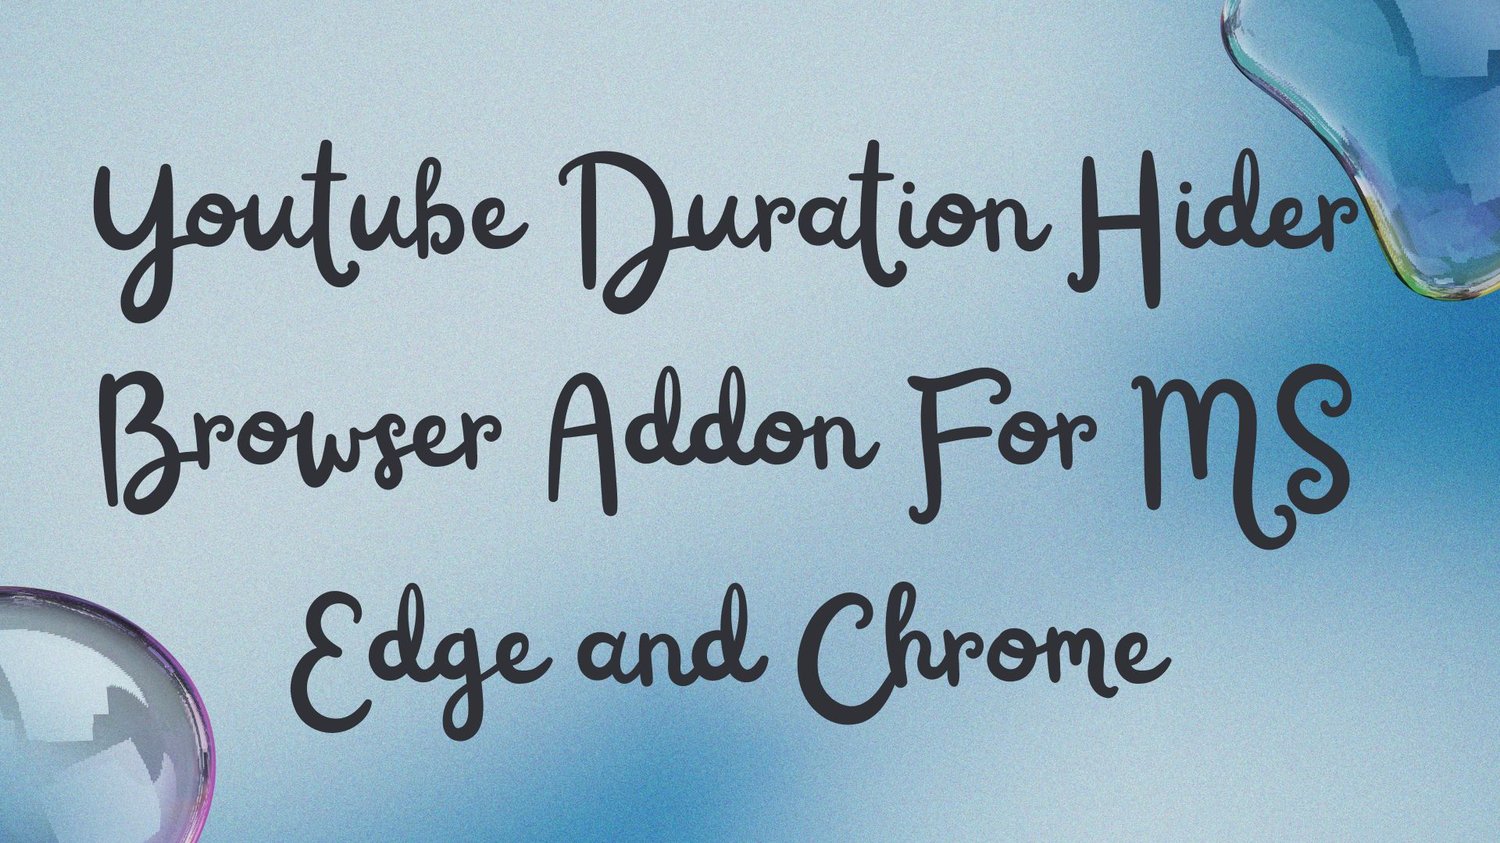 Youtube Duration Hider
Browser Addon For MS
Edge and Chrome